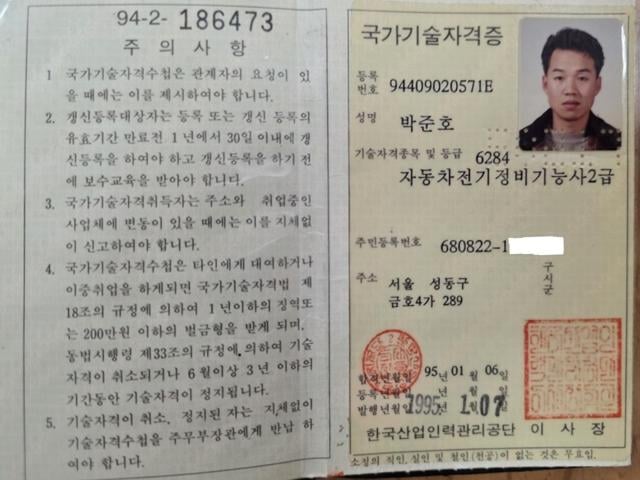 94-2- 186473
주 의 사 항
1 국가기술자격수첩은 관계자의 요청이 있
을 때에는 이를 제시하여야 합니다.
2. 갱신등록대상자는 등록 또는 갱신 등록의
유효기간 만료전 1년에서 30일 이내에 갱
신등록을 하여야 하고 갱신등록을 하기 전
에 보수교육을 받아야 합니다.
3. 국가기술자격취득자는 주소와 취업중인
사업체에 변동이 있을 때에는 이를 지체없
이 신고하여야 합니다.
4. 국가기술자격수첩은 타인에게 대여하거나
이중취업을 하게되면 국가기술자격법 제
18조의 규정에 의하여 1년이하의 징역또
는 200만원 이하의 벌금형을 받게 되며,
동법시행령 제33조의 규정에 의하여 기술
자격이 취소되거나 6월이상 3년 이하의
기간동안 기술자격이 정지됩니다.
5. 기술자격이 취소, 정지된 자는 지체없이
기술자격수첩을 주무부장관에게 반납 하
여야 합니다.
국가기술자격증
등록
번호 94409020571E
성명 박준호
기술자격종목 및 등급 6284
자동차전기정비기능사2급
주민등록번호 680822-1
주소 서울 성동구
금호4가 289
구시군
합격년월일 95년 01월 06일
등록년월일
발행년월일 1995 1.07
한국산업인력관리공단 이 사 장
소정의 직인, 실인 및 철인(천공)이 없는 것은 무효임.